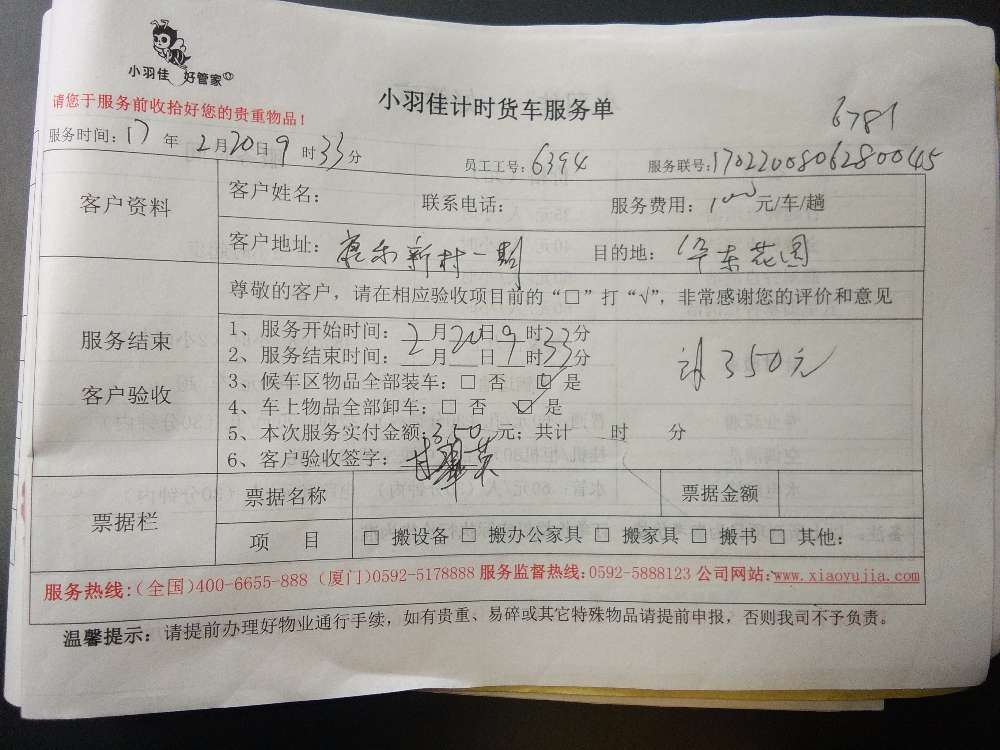 小羽佳 好管家
请您于服务前收拾好您的贵重物品!
小羽佳计时货车服务单
6781
服务时间:17年2月20日9时33分 员工工号:6394 服务联号:1702200806280045
客户资料
客户姓名: 联系电话: 服务费用:100元/车/趟
客户地址:康乐新村一期 目的地:华东花园
尊敬的客户，请在相应验收项目前的“□”打“√”，非常感谢您的评价和意见
服务结束
客户验收
1、服务开始时间:2月20日9时33分
2、服务结束时间:2月 日9时33分
3、候车区物品全部装车:□ 否 ☑ 是
4、车上物品全部卸车:□ 否 ☑ 是
5、本次服务实付金额:350元；共计 时 分
6、客户验收签字:
350元
票据栏
票据名称 票据金额
项 目 □ 搬设备 □ 搬办公家具 □ 搬家具 □ 搬书 □ 其他:
服务热线:(全国)400-6655-888 (厦门)0592-5178888 服务监督热线:0592-5888123 公司网站:www.xiaoyujia.com
温馨提示: 请提前办理好物业通行手续，如有贵重、易碎或其它特殊物品请提前申报，否则我司不予负责。